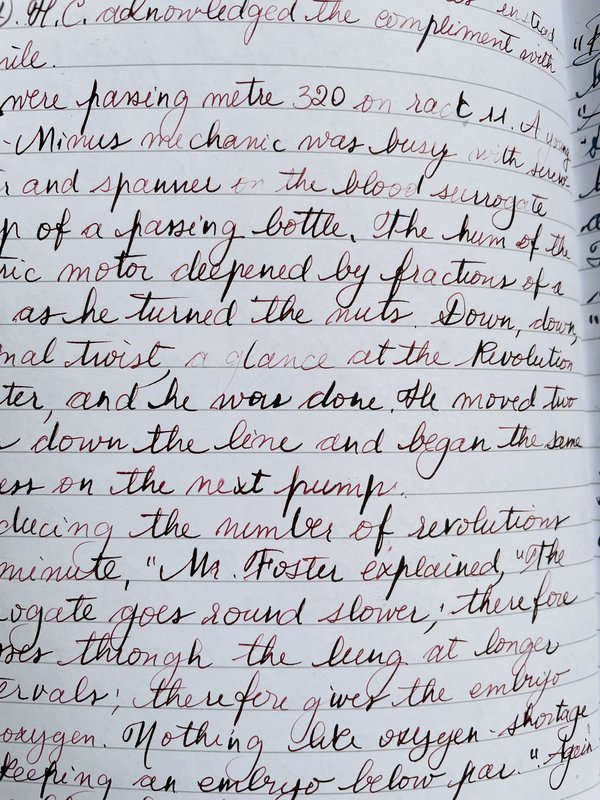 instead
). H.C. adnowledged the compliment with
mile.
were passing metre 320 on rack 11. A young
-Minus mechanic was busy with screw-
r and spanner on the blood surrogate
p of a passing bottle. The hum of the
ric motor deepened by fractions of a
as he turned the nuts. Down, down,
nal twist, a glance at the Revolution
ter, and he was done. He moved two
down the line and began the same
ess on the next pump.
ducing the number of revolutions
minute, "Mr. Foster explained, "The
ogate goes round slower; therefore
ses through the lung at longer
ervals; therefore gives the embryo
oxygen. Nothing like oxygen-shortage
keeping an embryo below par." Again